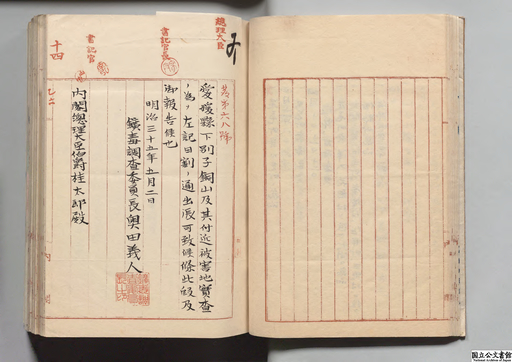 總理大臣
書記官長
書記官
十四
愛媛縣下別子銅山及其付近被害地實査
ノ為メ左記日割ノ通出張可致候條此段及
御報告候也
明治三十五年五月二日
鑛毒調査委員長奥田義人
内閣總理大臣伯爵桂太郎殿
国立公文書館
National Archives of Japan